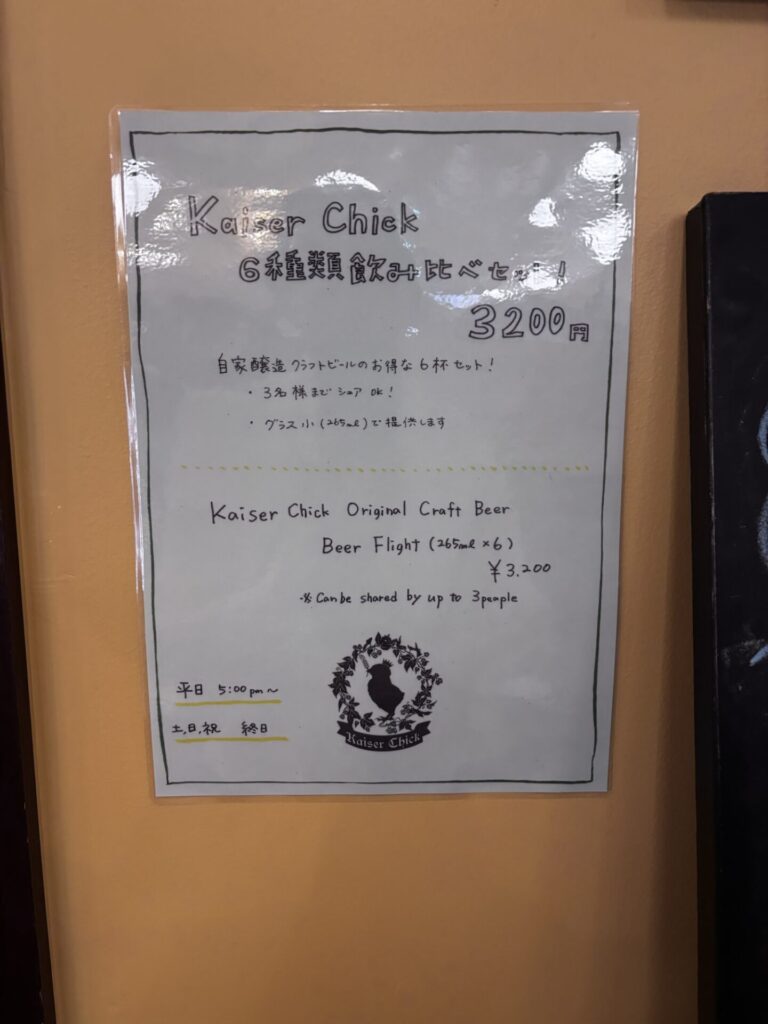 Kaiser Chick
6種類飲み比べセット!
3200円
自家醸造クラフトビールのお得な6杯セット!
・3名様までシェアOK!
・グラス小(265ml)で提供します
Kaiser Chick Original Craft Beer
Beer Flight (265ml×6)
¥3.200
※Can be shared by up to 3people
平日 5:00pm〜
土,日,祝 終日
Kaiser Chick